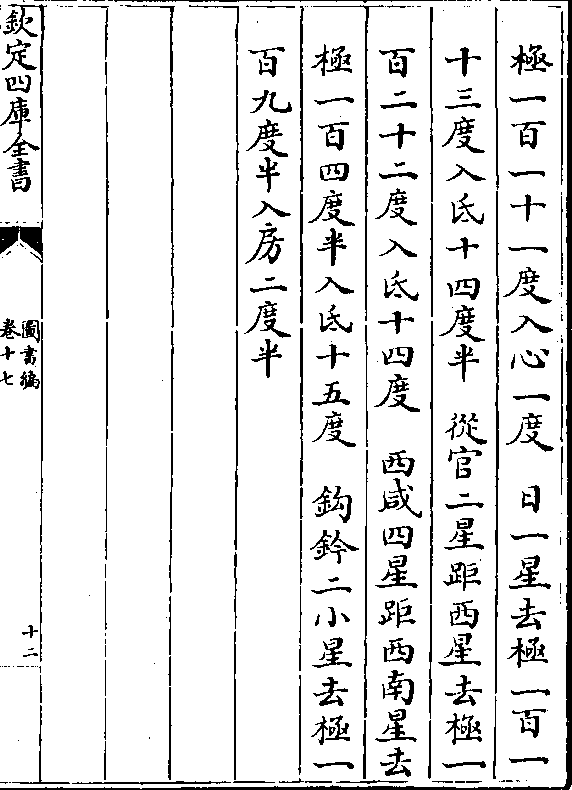 極一百一十一度入心一度　日一星去極一百一
十三度入氐十四度半　從官二星距西星去極一
百二十二度入氐十四度　西咸四星距西南星去
極一百四度半入氐十五度　鈎鈐二小星去極一
百九度半入房二度半
欽定四庫全書
圖書編
卷十七
十二